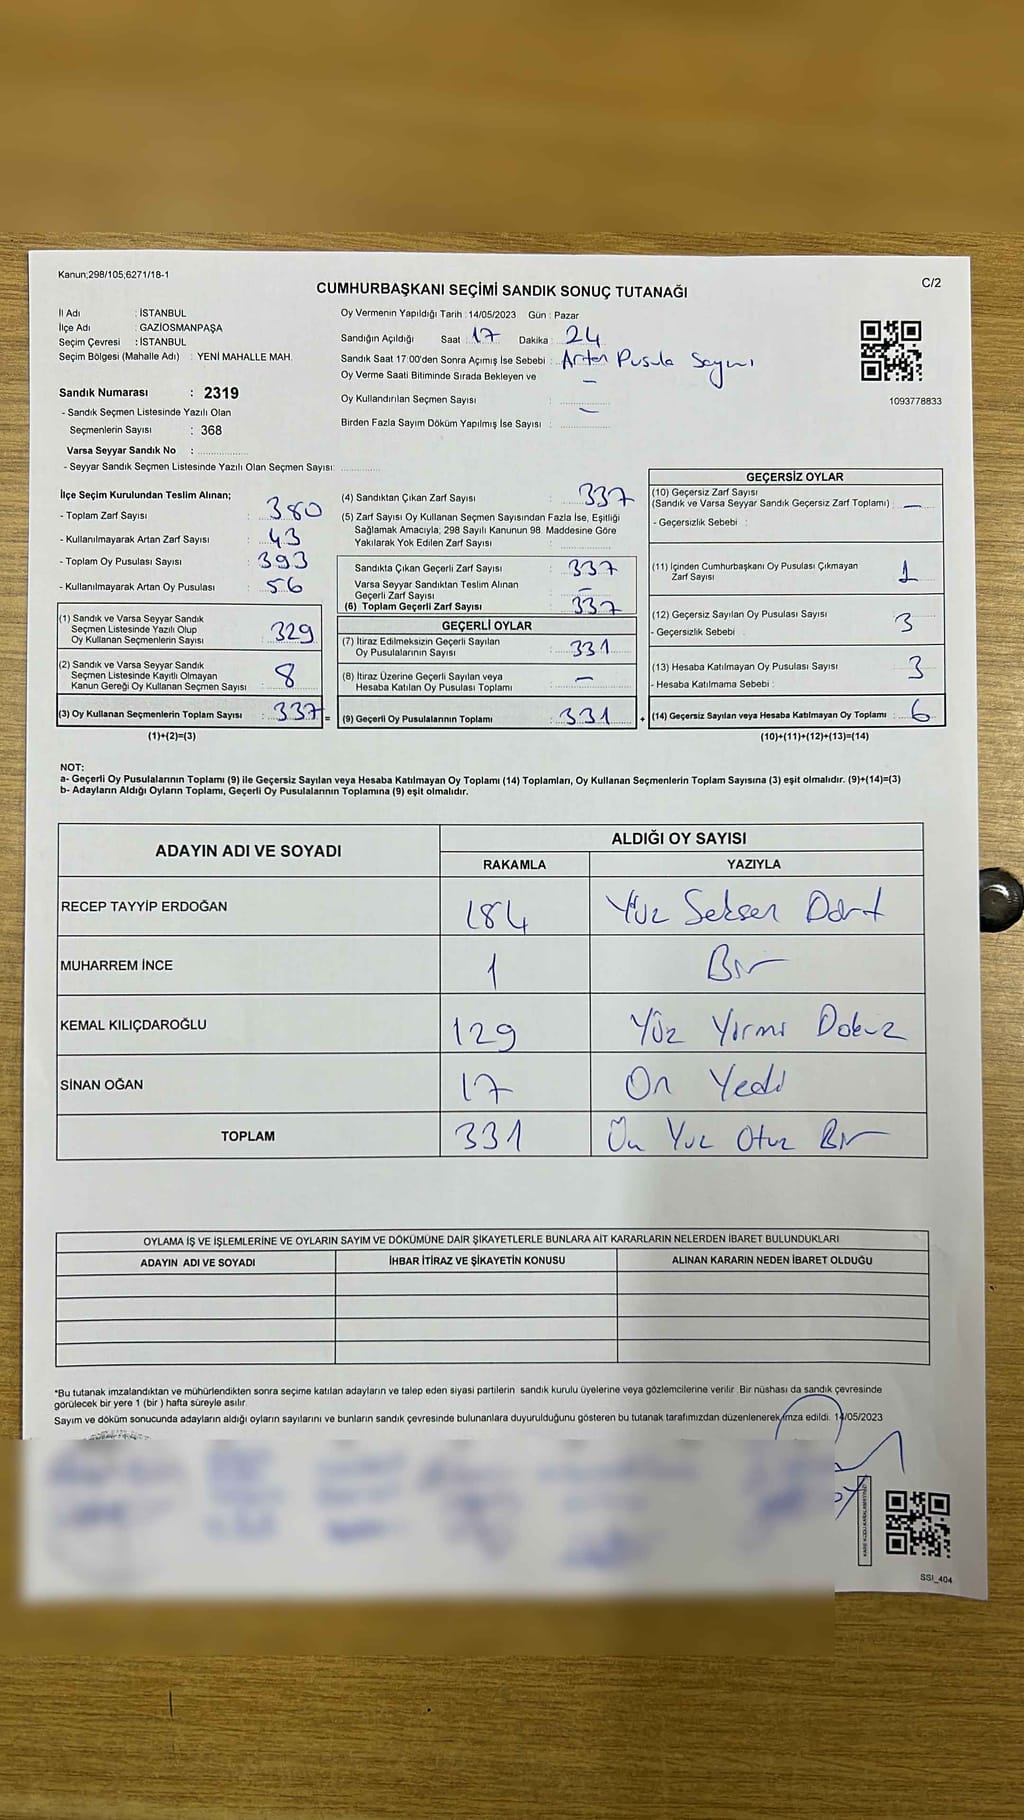 Kanun;298/105;6271/18-1
C/2
CUMHURBAŞKANI SEÇİMİ SANDIK SONUÇ TUTANAĞI
İl Adı : İSTANBUL
İlçe Adı : GAZİOSMANPAŞA
Seçim Çevresi : İSTANBUL
Seçim Bölgesi (Mahalle Adı) : YENİ MAHALLE MAH.
Oy Vermenin Yapıldığı Tarih :14/05/2023 Gün : Pazar
Sandığın Açıldığı Saat : 17 Dakika : 24
Sandık Saat 17:00'den Sonra Açımış İse Sebebi : Artan Pusula Sayımı
Oy Verme Saati Bitiminde Sırada Bekleyen ve
Oy Kullandırılan Seçmen Sayısı : –
Birden Fazla Sayım Döküm Yapılmış İse Sayısı : –
1093778833
Sandık Numarası : 2319
- Sandık Seçmen Listesinde Yazılı Olan
Seçmenlerin Sayısı : 368
Varsa Seyyar Sandık No :
- Seyyar Sandık Seçmen Listesinde Yazılı Olan Seçmen Sayısı:
İlçe Seçim Kurulundan Teslim Alınan;
- Toplam Zarf Sayısı : 380
- Kullanılmayarak Artan Zarf Sayısı : 43
- Toplam Oy Pusulası Sayısı : 393
- Kullanılmayarak Artan Oy Pusulası : 56
(1) Sandık ve Varsa Seyyar Sandık
Seçmen Listesinde Yazılı Olup
Oy Kullanan Seçmenlerin Sayısı : 329
(2) Sandık ve Varsa Seyyar Sandık
Seçmen Listesinde Kayıtlı Olmayan
Kanun Gereği Oy Kullanan Seçmen Sayısı : 8
(3) Oy Kullanan Seçmenlerin Toplam Sayısı : 337
(1)+(2)=(3)
(4) Sandıktan Çıkan Zarf Sayısı : 337
(5) Zarf Sayısı Oy Kullanan Seçmen Sayısından Fazla İse, Eşitliği
Sağlamak Amacıyla; 298 Sayılı Kanunun 98. Maddesine Göre
Yakılarak Yok Edilen Zarf Sayısı :
Sandıkta Çıkan Geçerli Zarf Sayısı : 337
Varsa Seyyar Sandıktan Teslim Alınan
Geçerli Zarf Sayısı : –
(6) Toplam Geçerli Zarf Sayısı : 337
GEÇERLİ OYLAR
(7) İtiraz Edilmeksizin Geçerli Sayılan
Oy Pusulalarının Sayısı : 331
(8) İtiraz Üzerine Geçerli Sayılan veya
Hesaba Katılan Oy Pusulası Toplamı : –
= (9) Geçerli Oy Pusulalarının Toplamı : 331 +
GEÇERSİZ OYLAR
(10) Geçersiz Zarf Sayısı
(Sandık ve Varsa Seyyar Sandık Geçersiz Zarf Toplamı) : –
- Geçersizlik Sebebi :
(11) İçinden Cumhurbaşkanı Oy Pusulası Çıkmayan
Zarf Sayısı : 1
(12) Geçersiz Sayılan Oy Pusulası Sayısı : 3
- Geçersizlik Sebebi :
(13) Hesaba Katılmayan Oy Pusulası Sayısı : 3
- Hesaba Katılmama Sebebi :
(14) Geçersiz Sayılan veya Hesaba Katılmayan Oy Toplamı : 6
(10)+(11)+(12)+(13)=(14)
NOT:
a- Geçerli Oy Pusulalarının Toplamı (9) ile Geçersiz Sayılan veya Hesaba Katılmayan Oy Toplamı (14) Toplamları, Oy Kullanan Seçmenlerin Toplam Sayısına (3) eşit olmalıdır. (9)+(14)=(3)
b- Adayların Aldığı Oyların Toplamı, Geçerli Oy Pusulalarının Toplamına (9) eşit olmalıdır.
ADAYIN ADI VE SOYADI
ALDIĞI OY SAYISI
RAKAMLA YAZIYLA
RECEP TAYYİP ERDOĞAN 184 Yüz Seksen Dört
MUHARREM İNCE 1 Bir
KEMAL KILIÇDAROĞLU 129 Yüz Yirmi Dokuz
SİNAN OĞAN 17 On Yedi
TOPLAM 331 Üç Yüz Otuz Bir
OYLAMA İŞ VE İŞLEMLERİNE VE OYLARIN SAYIM VE DÖKÜMÜNE DAİR ŞİKAYETLERLE BUNLARA AİT KARARLARIN NELERDEN İBARET BULUNDUKLARI
ADAYIN ADI VE SOYADI İHBAR İTİRAZ VE ŞİKAYETİN KONUSU ALINAN KARARIN NEDEN İBARET OLDUĞU
*Bu tutanak imzalandıktan ve mühürlendikten sonra seçime katılan adayların ve talep eden siyasi partilerin sandık kurulu üyelerine veya gözlemcilerine verilir. Bir nüshası da sandık çevresinde
görülecek bir yere 1 (bir ) hafta süreyle asılır.
Sayım ve döküm sonucunda adayların aldığı oyların sayılarını ve bunların sandık çevresinde bulunanlara duyurulduğunu gösteren bu tutanak tarafımızdan düzenlenerek imza edildi. 14/05/2023
KARE KODU KARALAMAYINIZ
SSİ_404